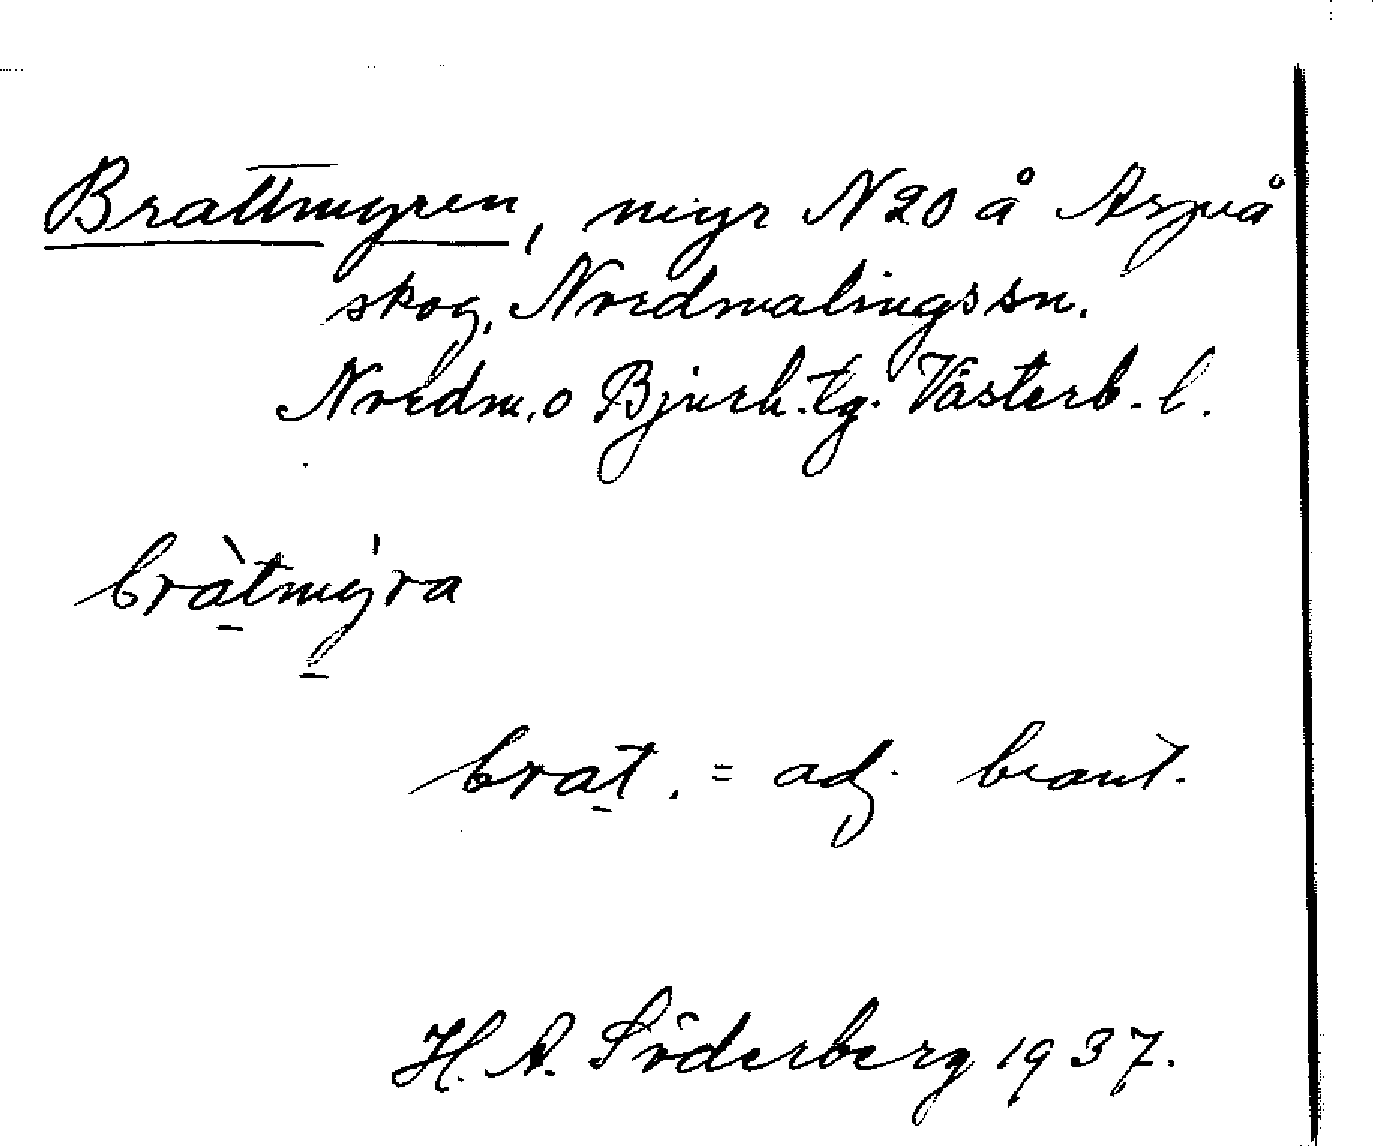 Brattmyren, myr N 20 å
skog, Nordmalings sn.
Nordm. o Bjurh. tg. Västerb. l.
brà̠tmy̠̍ra
bra̠t. = adj. brant.
H. A. Söderberg 1937.